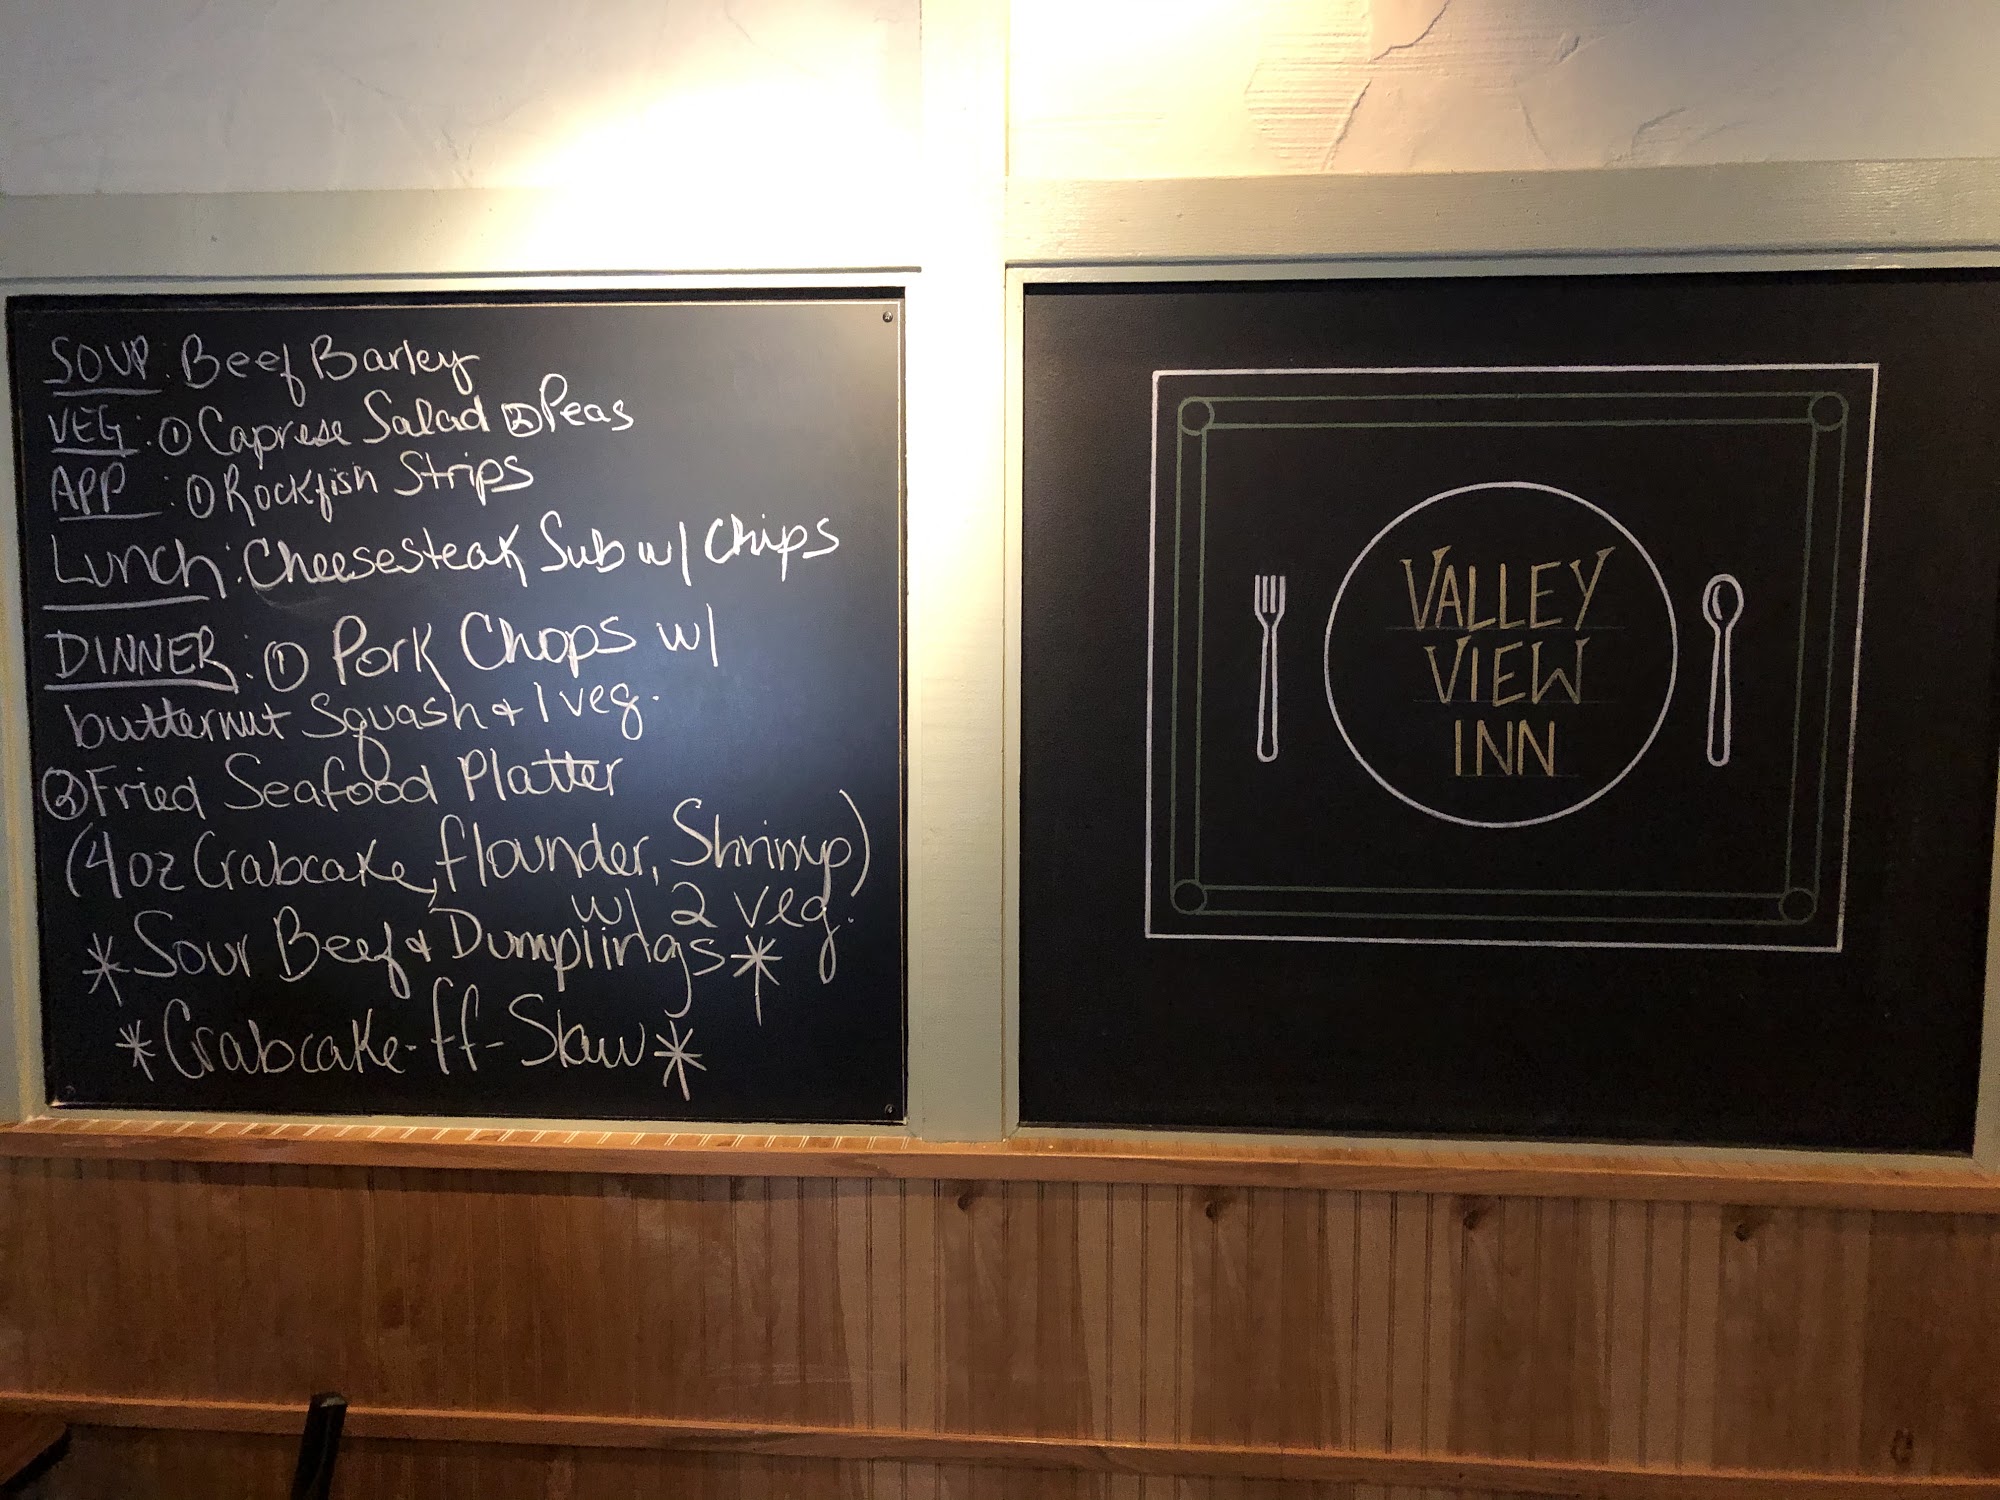 SOUP: Beef Barley
VEG: ① Caprese Salad ② Peas
APP: ① Rockfish Strips
Lunch: Cheesesteak Sub w/ Chips
DINNER: ① Pork Chops w/
butternut Squash & 1 veg.
② Fried Seafood Platter
(4oz Crabcake, flounder, Shrimp)
w/ 2 veg.
* Sour Beef & Dumplings *
* Crabcake-ff-Slaw *
VALLEY
VIEW
INN